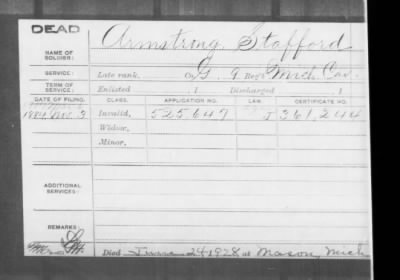 DEAD
NAME OF SOLDIER: Armstrong, Stafford
SERVICE: Late rank, Co. G, 9 Reg't Mich Cav.
TERM OF SERVICE: Enlisted , 1 Discharged , 1
DATE OF FILING. CLASS. APPLICATION NO. LAW. CERTIFICATE NO.
3 Invalid, 525.647 J 361,244
Widow,
Minor,
ADDITIONAL SERVICES:
REMARKS:
Died June 24 1928 at Mason, Mich